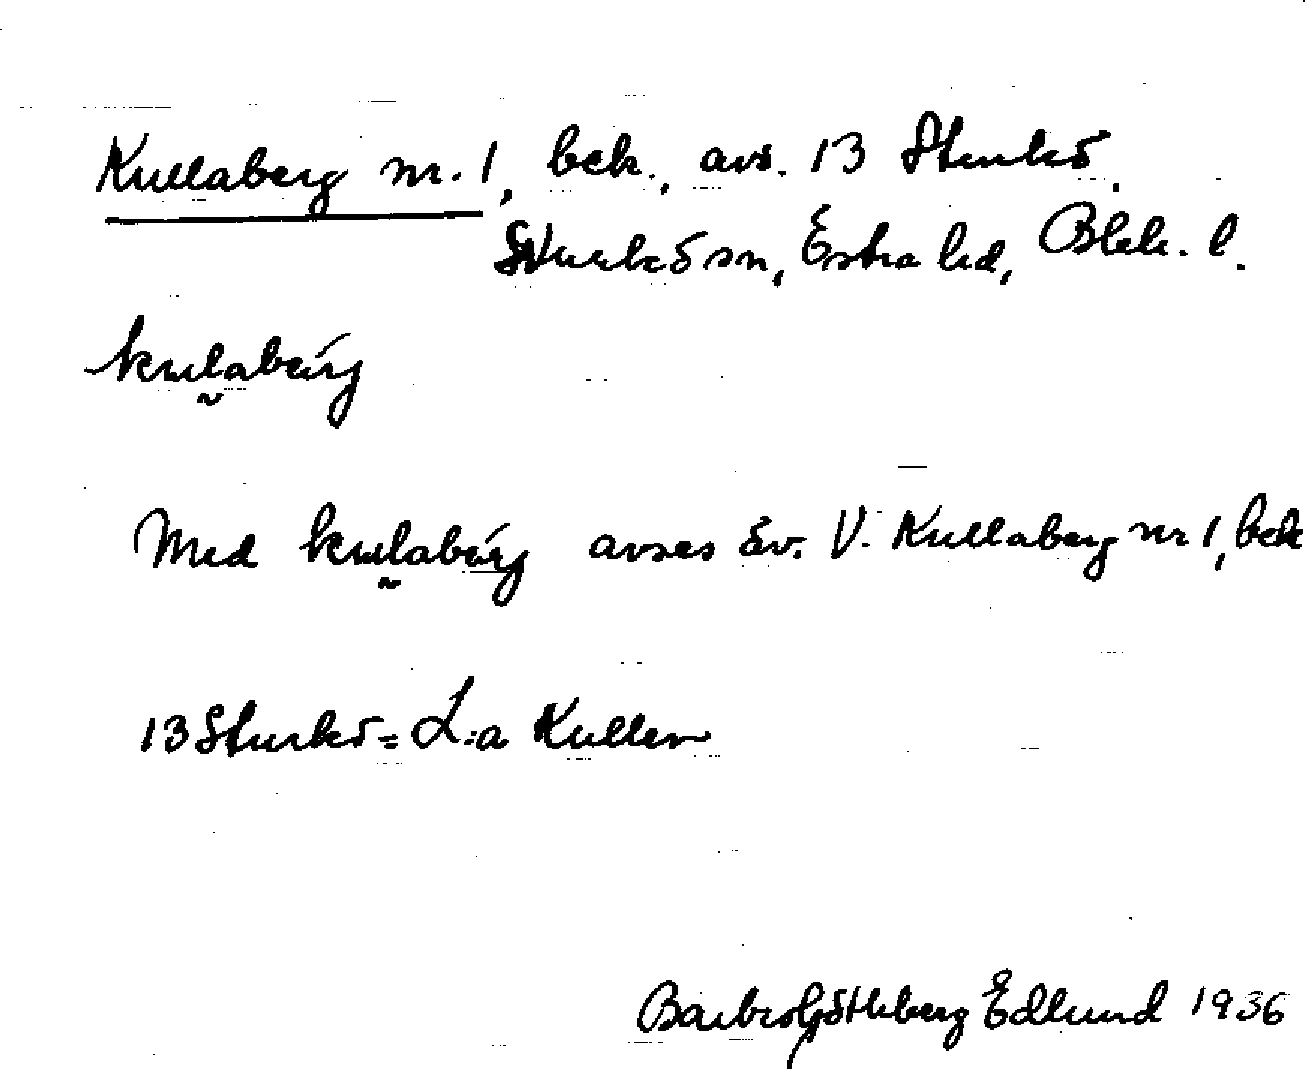 Kullaberg nr. 1, bek., avs. 13 Sturkö,
Sturkö sn, Östra hd, Blek. l.
kulabærg
Med kulabærg avses äv. V. Kullaberg nr 1, bek
13 Sturkö = L:a Kullen
Barbro Götheberg Edlund 1936